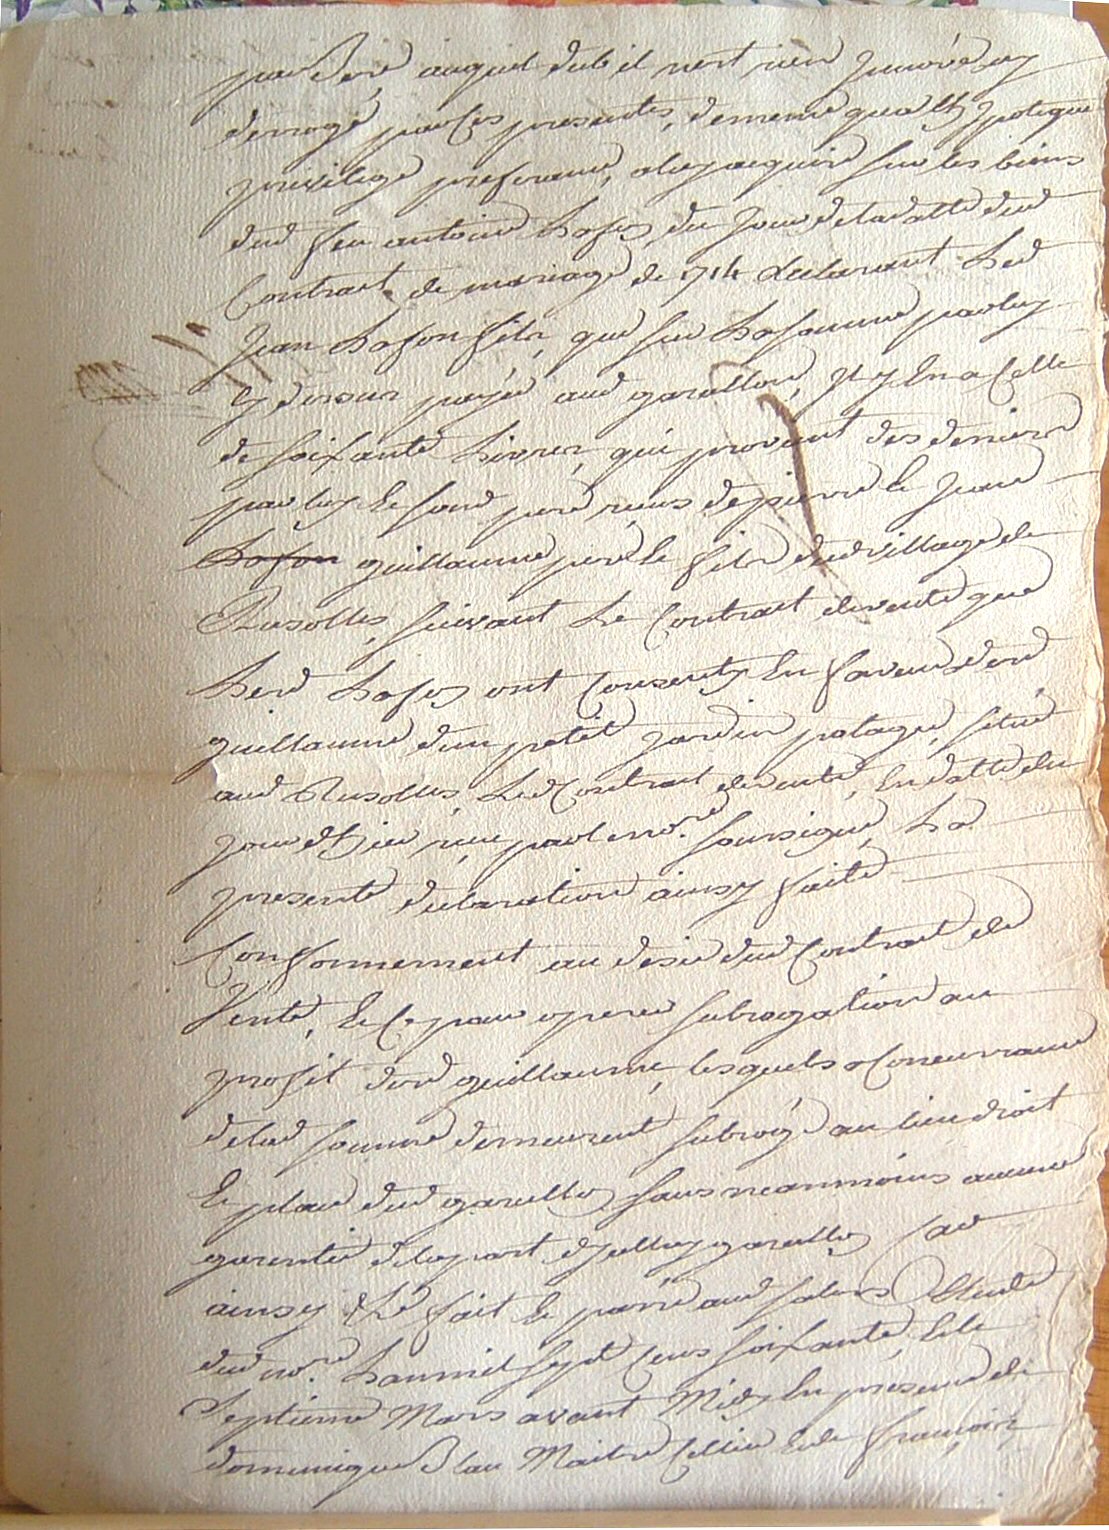 auquel dud il n'est rien Jnnové ny
derogé par Ces presentes, de meme qua lhypoteque
privilege preferance, a luy acquise sur les biens
dud feu antoine Lafon du Jour de la datte dud
Contract de mariage de 1714 declarant Led
Jean Lafon fils, que sur La somme par luy
Cy dessus payée aud garcellon, Jl y En a Celle
de soixante Livres, qui provient des deniers
par luy Et son pere reçus de pierre Et Jean
Lafon guillaume pere Et fils dud village de
Rusolles, suivant Le Contract de vente que
Lesd Lafon ont Consenty En faveur desd
guillaume d'un petit Jardin potager, situé
aud Rusolles, Led Contract de vente, En datte du
Jour d'hier reçu par le no.re soussigné, La
presente declaration ainsy faite
Conformement au desir dud Contract de
Vente, Et Ce pour operer subrogation au
profit desd guillaume, lesquels a Concurrance
de lad somme demeurent subrogé au lieu droit
Et place dud garcellon sans neanmoins aucune
garentie de la part d'Jcelluy garcellon Car
ainsy Eté fait Et passé aud salers Etude
dud no.re Lan mil sept Cens soixante, Et le
septieme Mars avant Midy En presence de
dominique Blau Maitre Cellier Et de françois